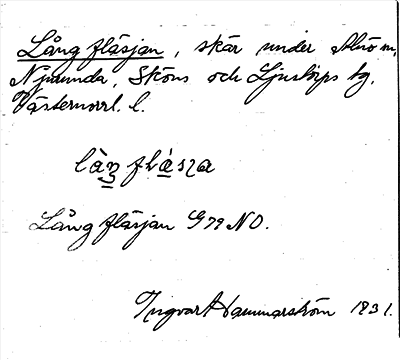 Lång fläsjan, skär under Alnö m,
Njurunda, Sköns och Ljustorps tg.
Västernorrl. l.
Lång fläsjan G79 NO.
Ingvar Hammarström 1931.